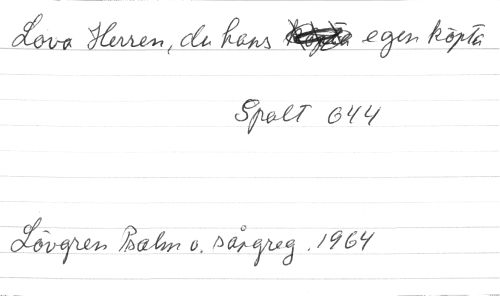 Lova Herren, du hans egen köpta
Spalt 644
Lövgren Psalm o. sångreg. 1964